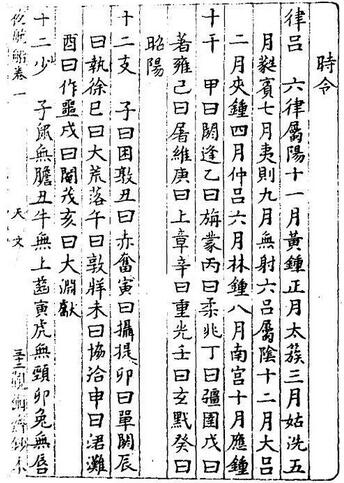 時令
律呂　六律屬陽十一月黃鍾正月太簇三月姑洗五
月蕤賓七月夷則九月無射六呂屬陰十二月大呂
二月夾鍾四月仲呂六月林鍾八月南宮十月應鍾
十干　甲曰閼逢乙曰旃蒙丙曰柔兆丁曰彊圉戊曰
著雍己曰屠維庚曰上章辛曰重光壬曰玄黓癸曰
昭陽
十二支　子曰困敦丑曰赤奮寅曰攝提卯曰單閼辰
曰執徐巳曰大荒落午曰敦牂未曰協洽申曰涒灘
酉曰作噩戌曰閹茂亥曰大淵獻
十二少　子鼠無膽丑牛無上齒寅虎無頸卯兔無唇
夜航船卷一　天文　觀術齋鈔本